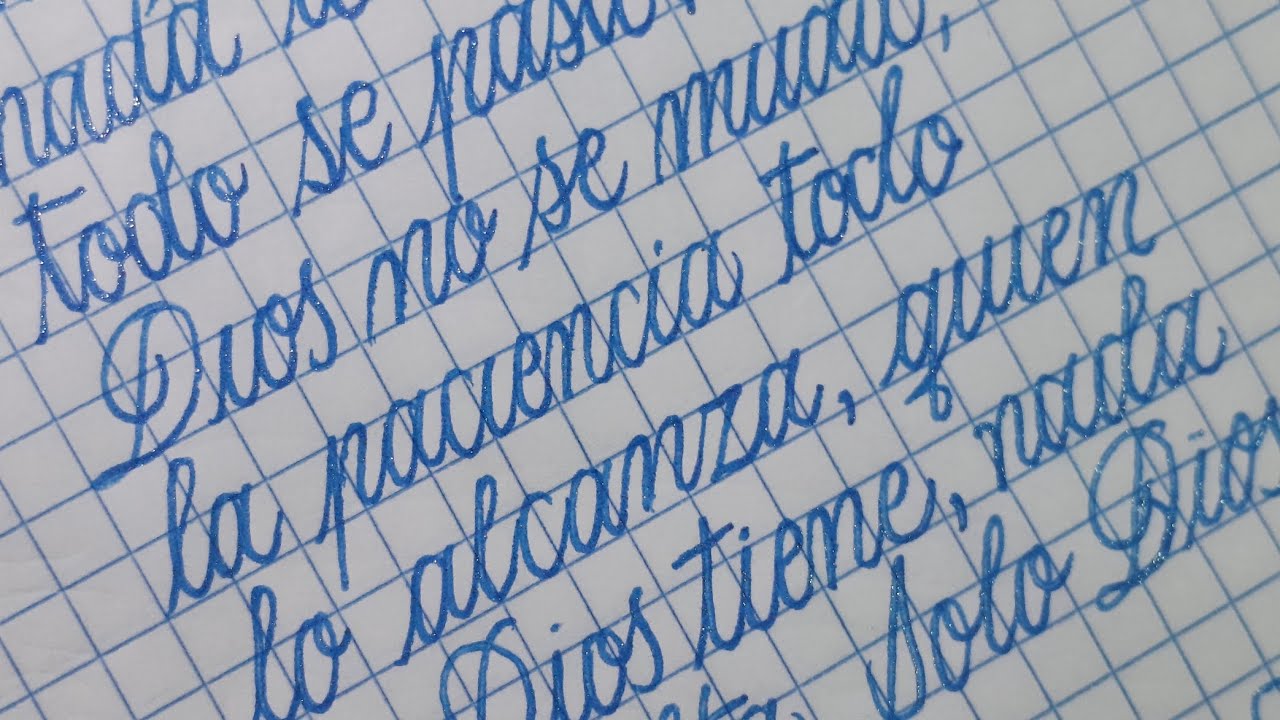 nada
todo se pasa
Dios no se muda,
la paciencia todo
lo alcanza, quien
Dios tiene, nada
solo Dios